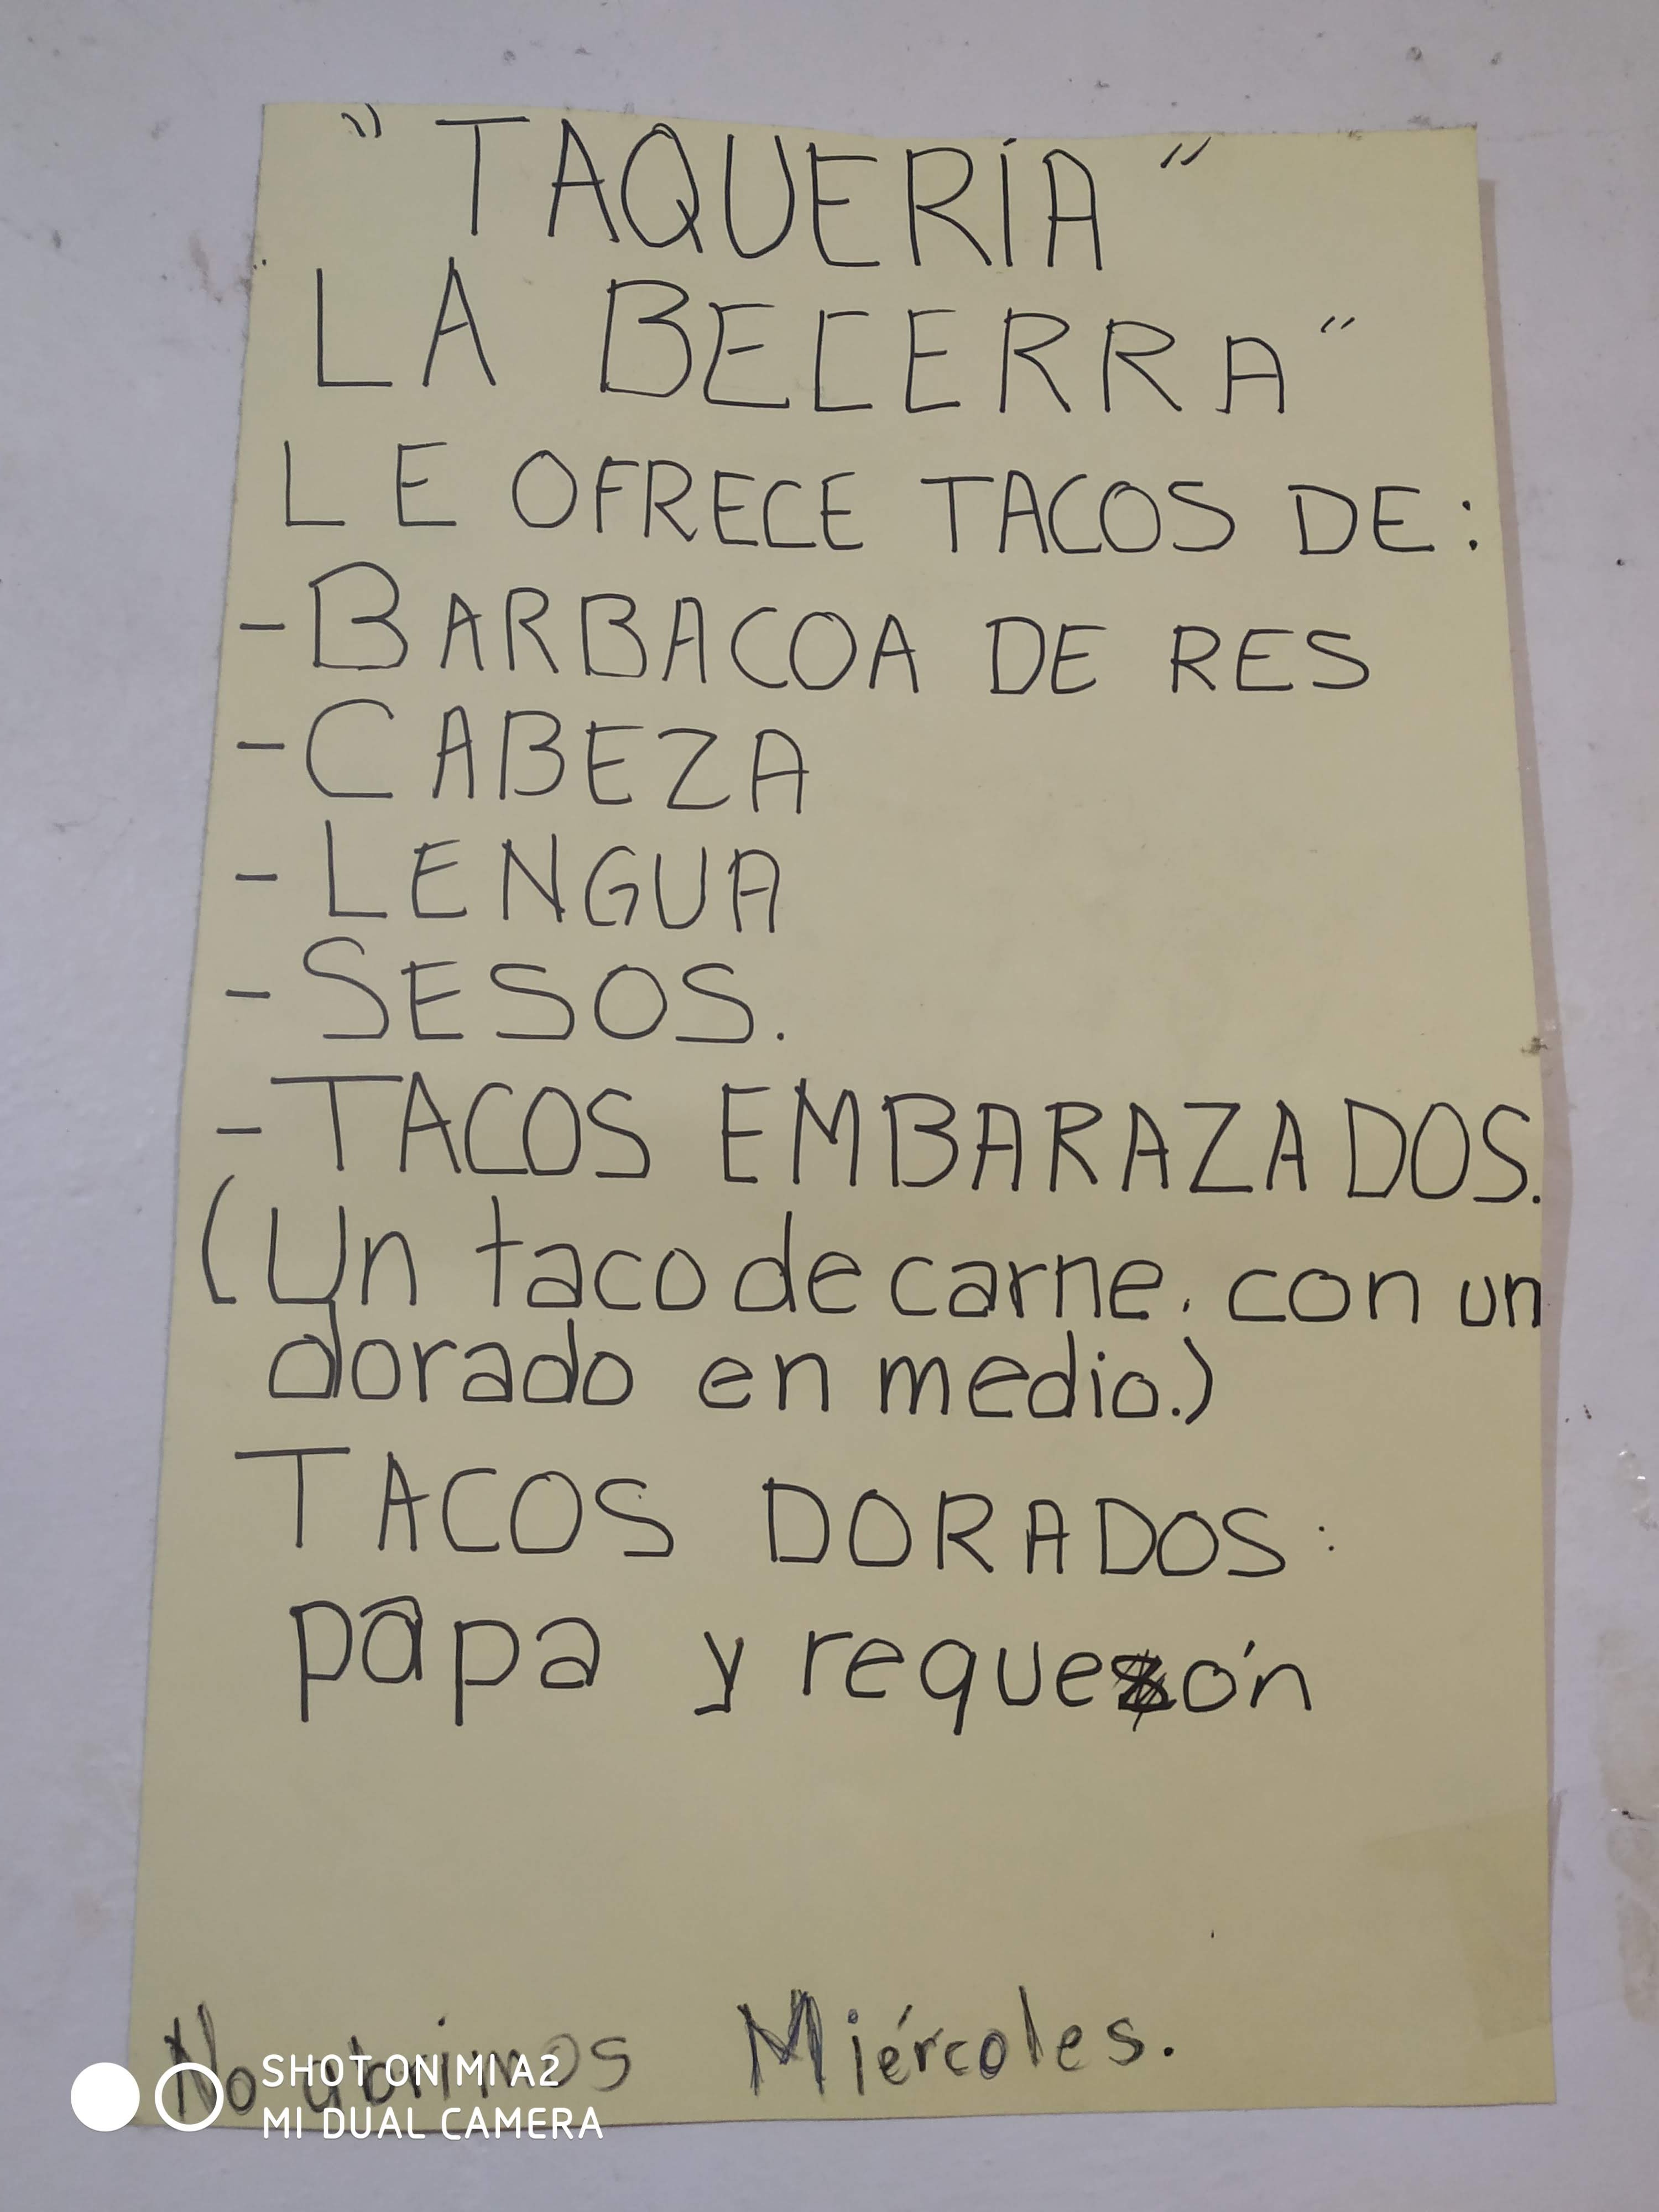 "TAQUERÍA"
"LA BECERRA"
LE OFRECE TACOS DE:
-BARBACOA DE RES
-CABEZA
-LENGUA
-SESOS.
-TACOS EMBARAZADOS.
(Un taco de carne. con un
dorado en medio.)
TACOS DORADOS:
papa y requesón
No abrimos Miércoles.
SHOT ON MI A2
MI DUAL CAMERA